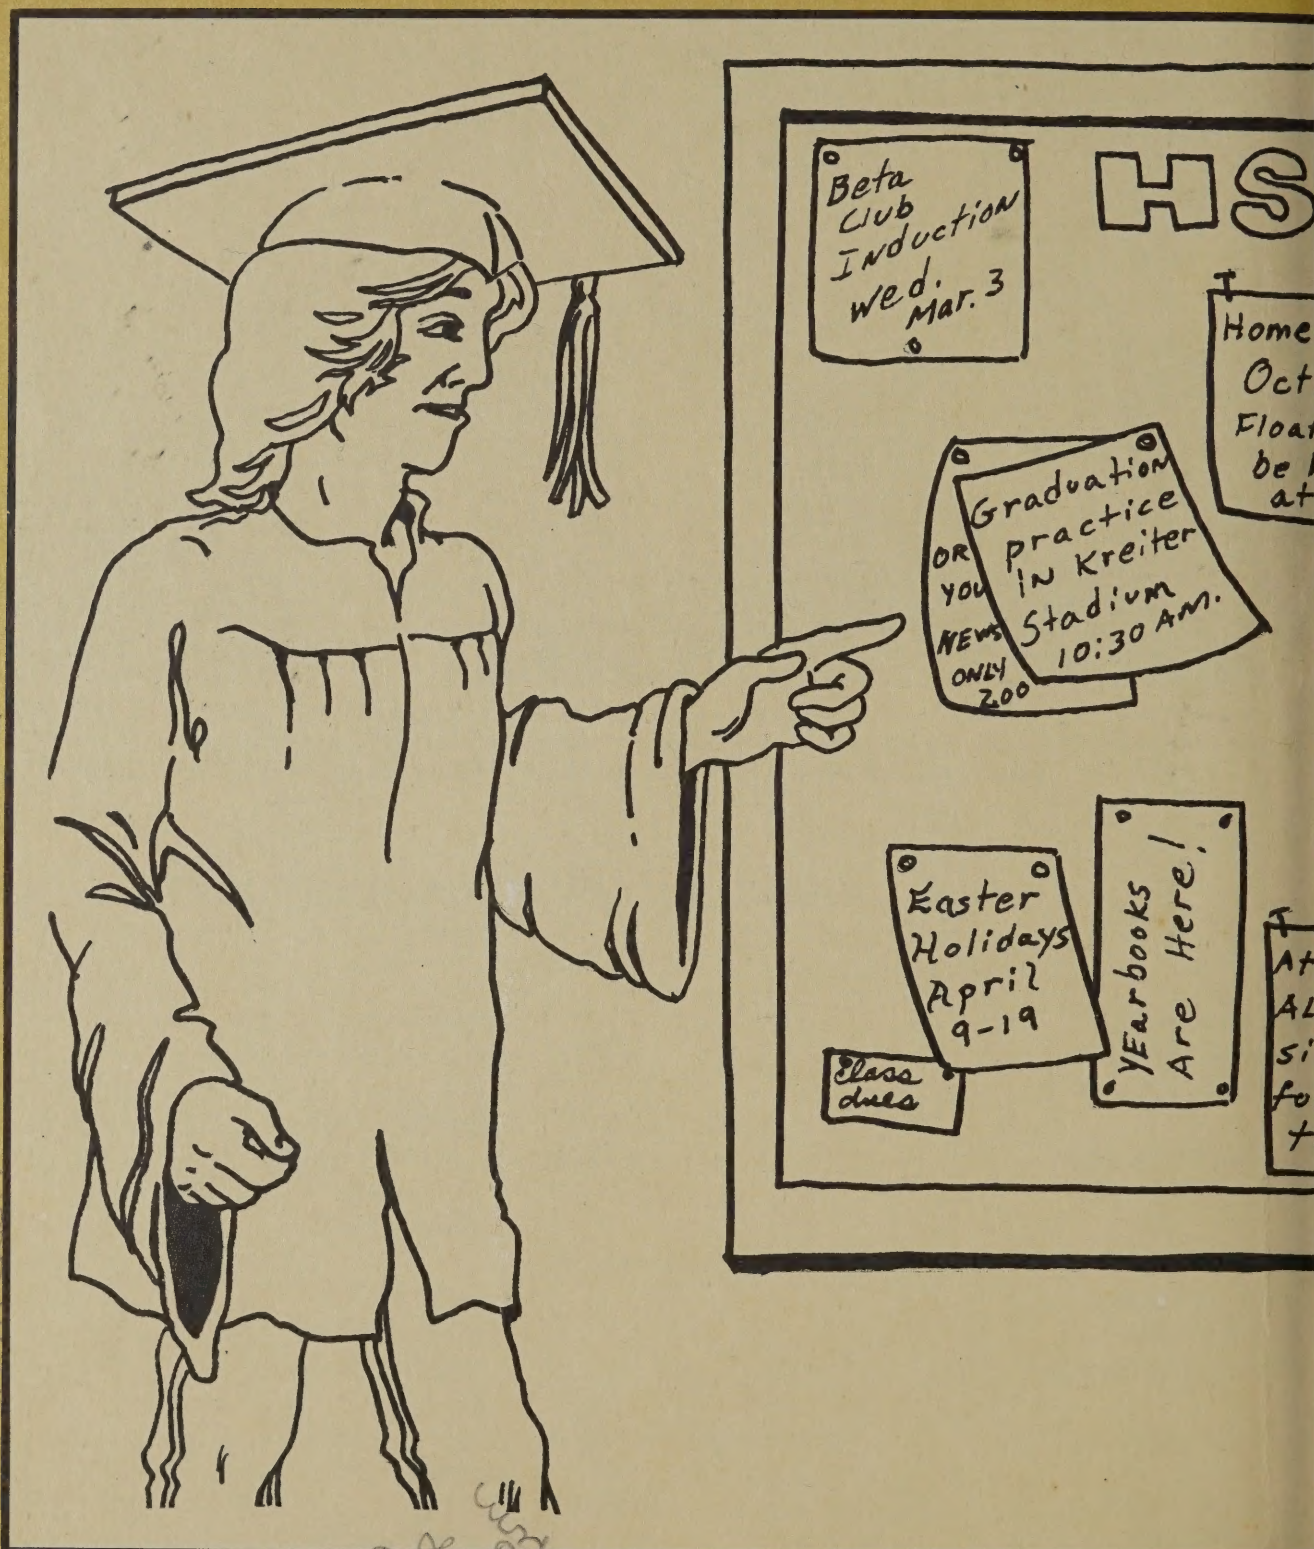 HS
Beta
Club
Induction
Wed.
Mar. 3
Home
Oct
Float
be
at
Graduation
practice
in Kreiter
Stadium
10:30 AM.
OR
YOU
NEWS
ONLY
200
Easter
Holidays
April
9-19
YEarbooks
Are Here!
Class
dues
At
AL
si
fo
t